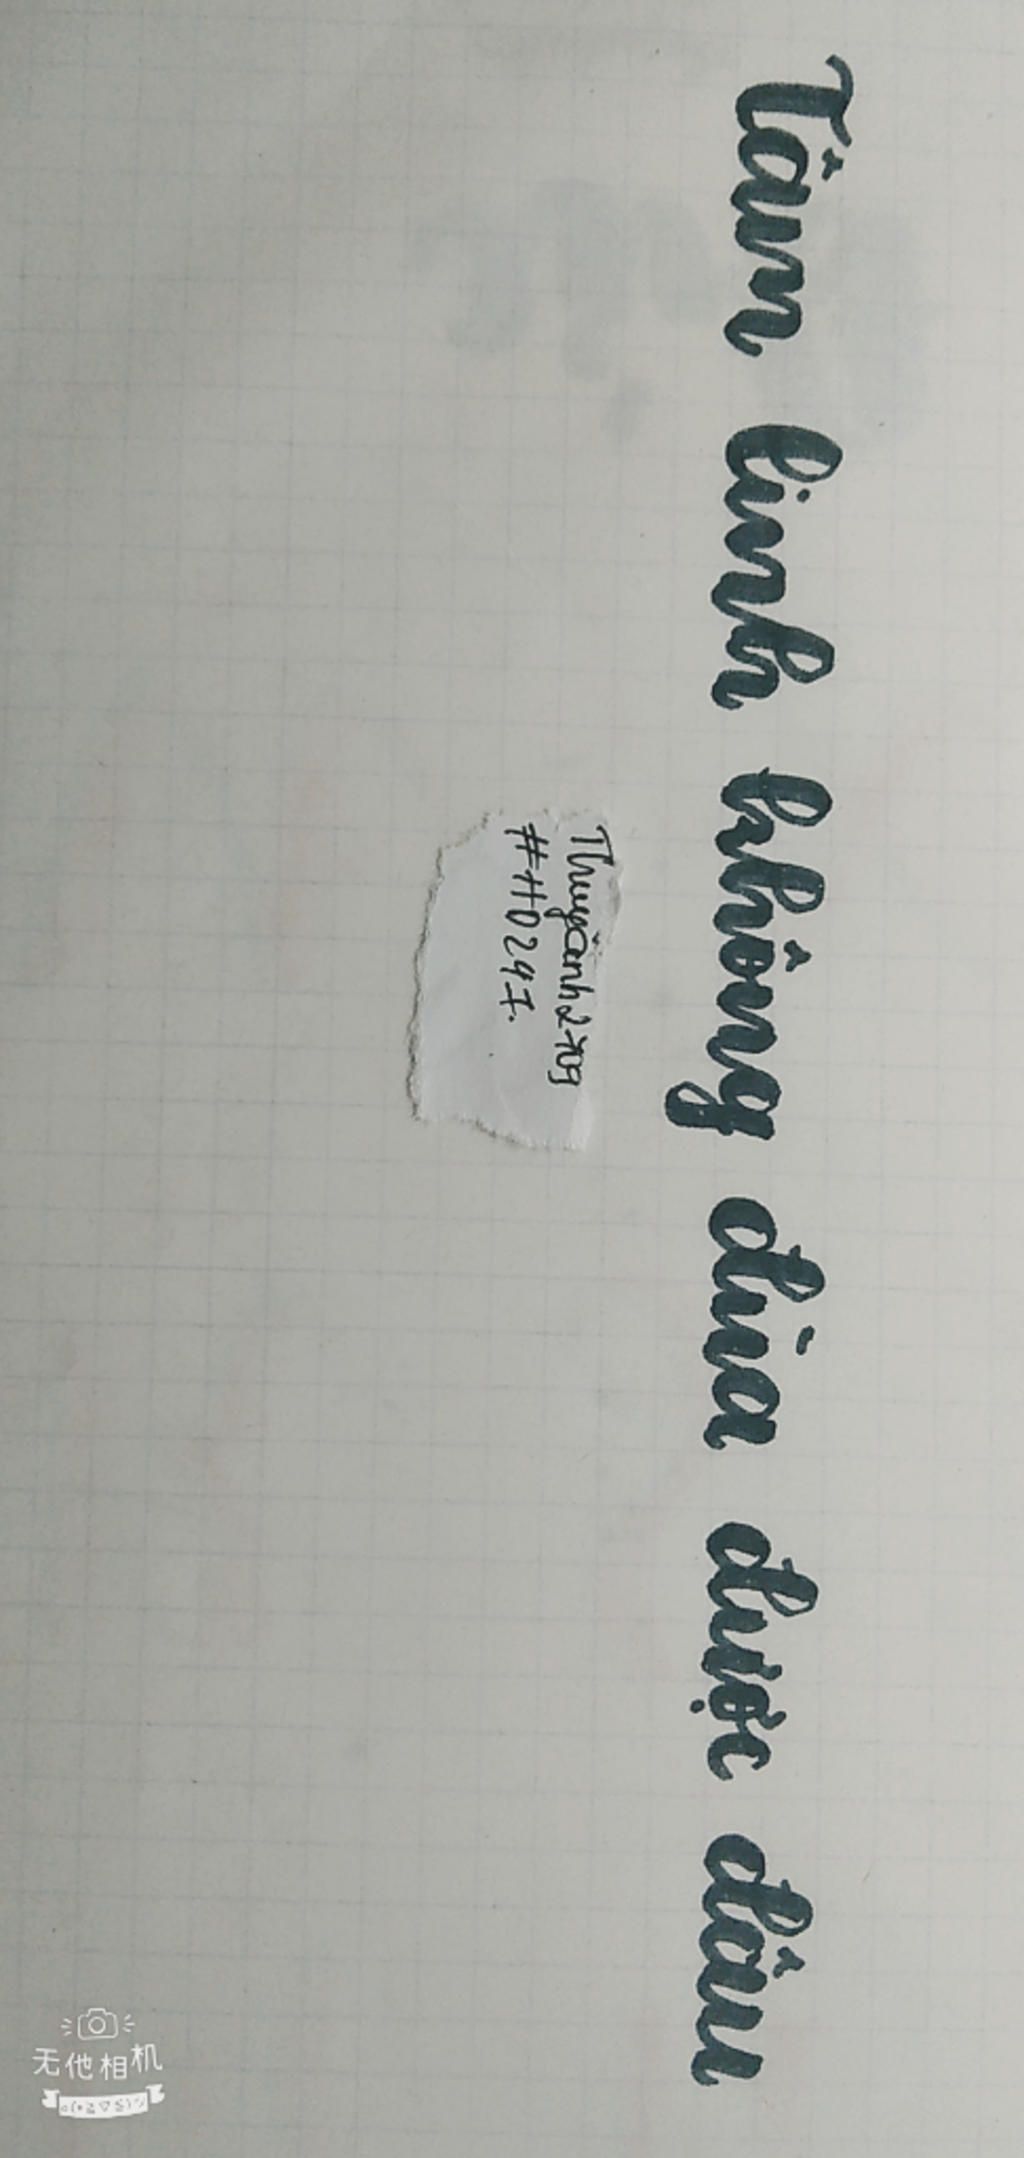 Tâm linh không đùa được đâu
Thuyảnh2709
#HD297.
无他相机